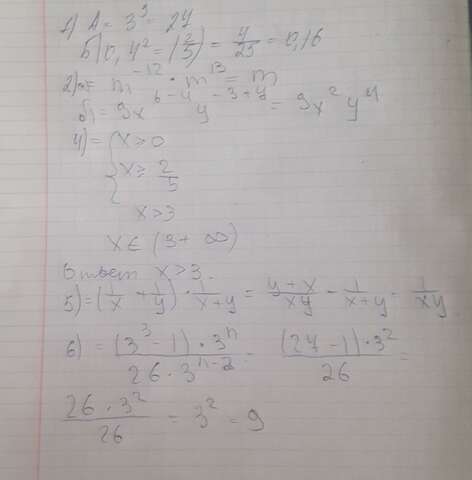 1) A = 3³ = 27
б) 0,4² = (2/5) = 4/25 = 0,16
2) m⁻¹² · m¹³ = m
б) = 9x⁶⁻⁴ y⁻³⁺⁴ = 9x² y⁴
4) = { x > 0
x ≥ 2/5
x > 3
x ∈ (3 + ∞)
Ответ x > 3.
5) = (1/x + 1/y) · 1/(x+y) = (y+x)/xy - 1/(x+y) - 1/xy
6) = ((3³ - 1) · 3ⁿ)/(26 · 3ⁿ⁻²) - ((27 - 1) · 3²)/26 =
(26 · 3²)/26 = 3² = 9